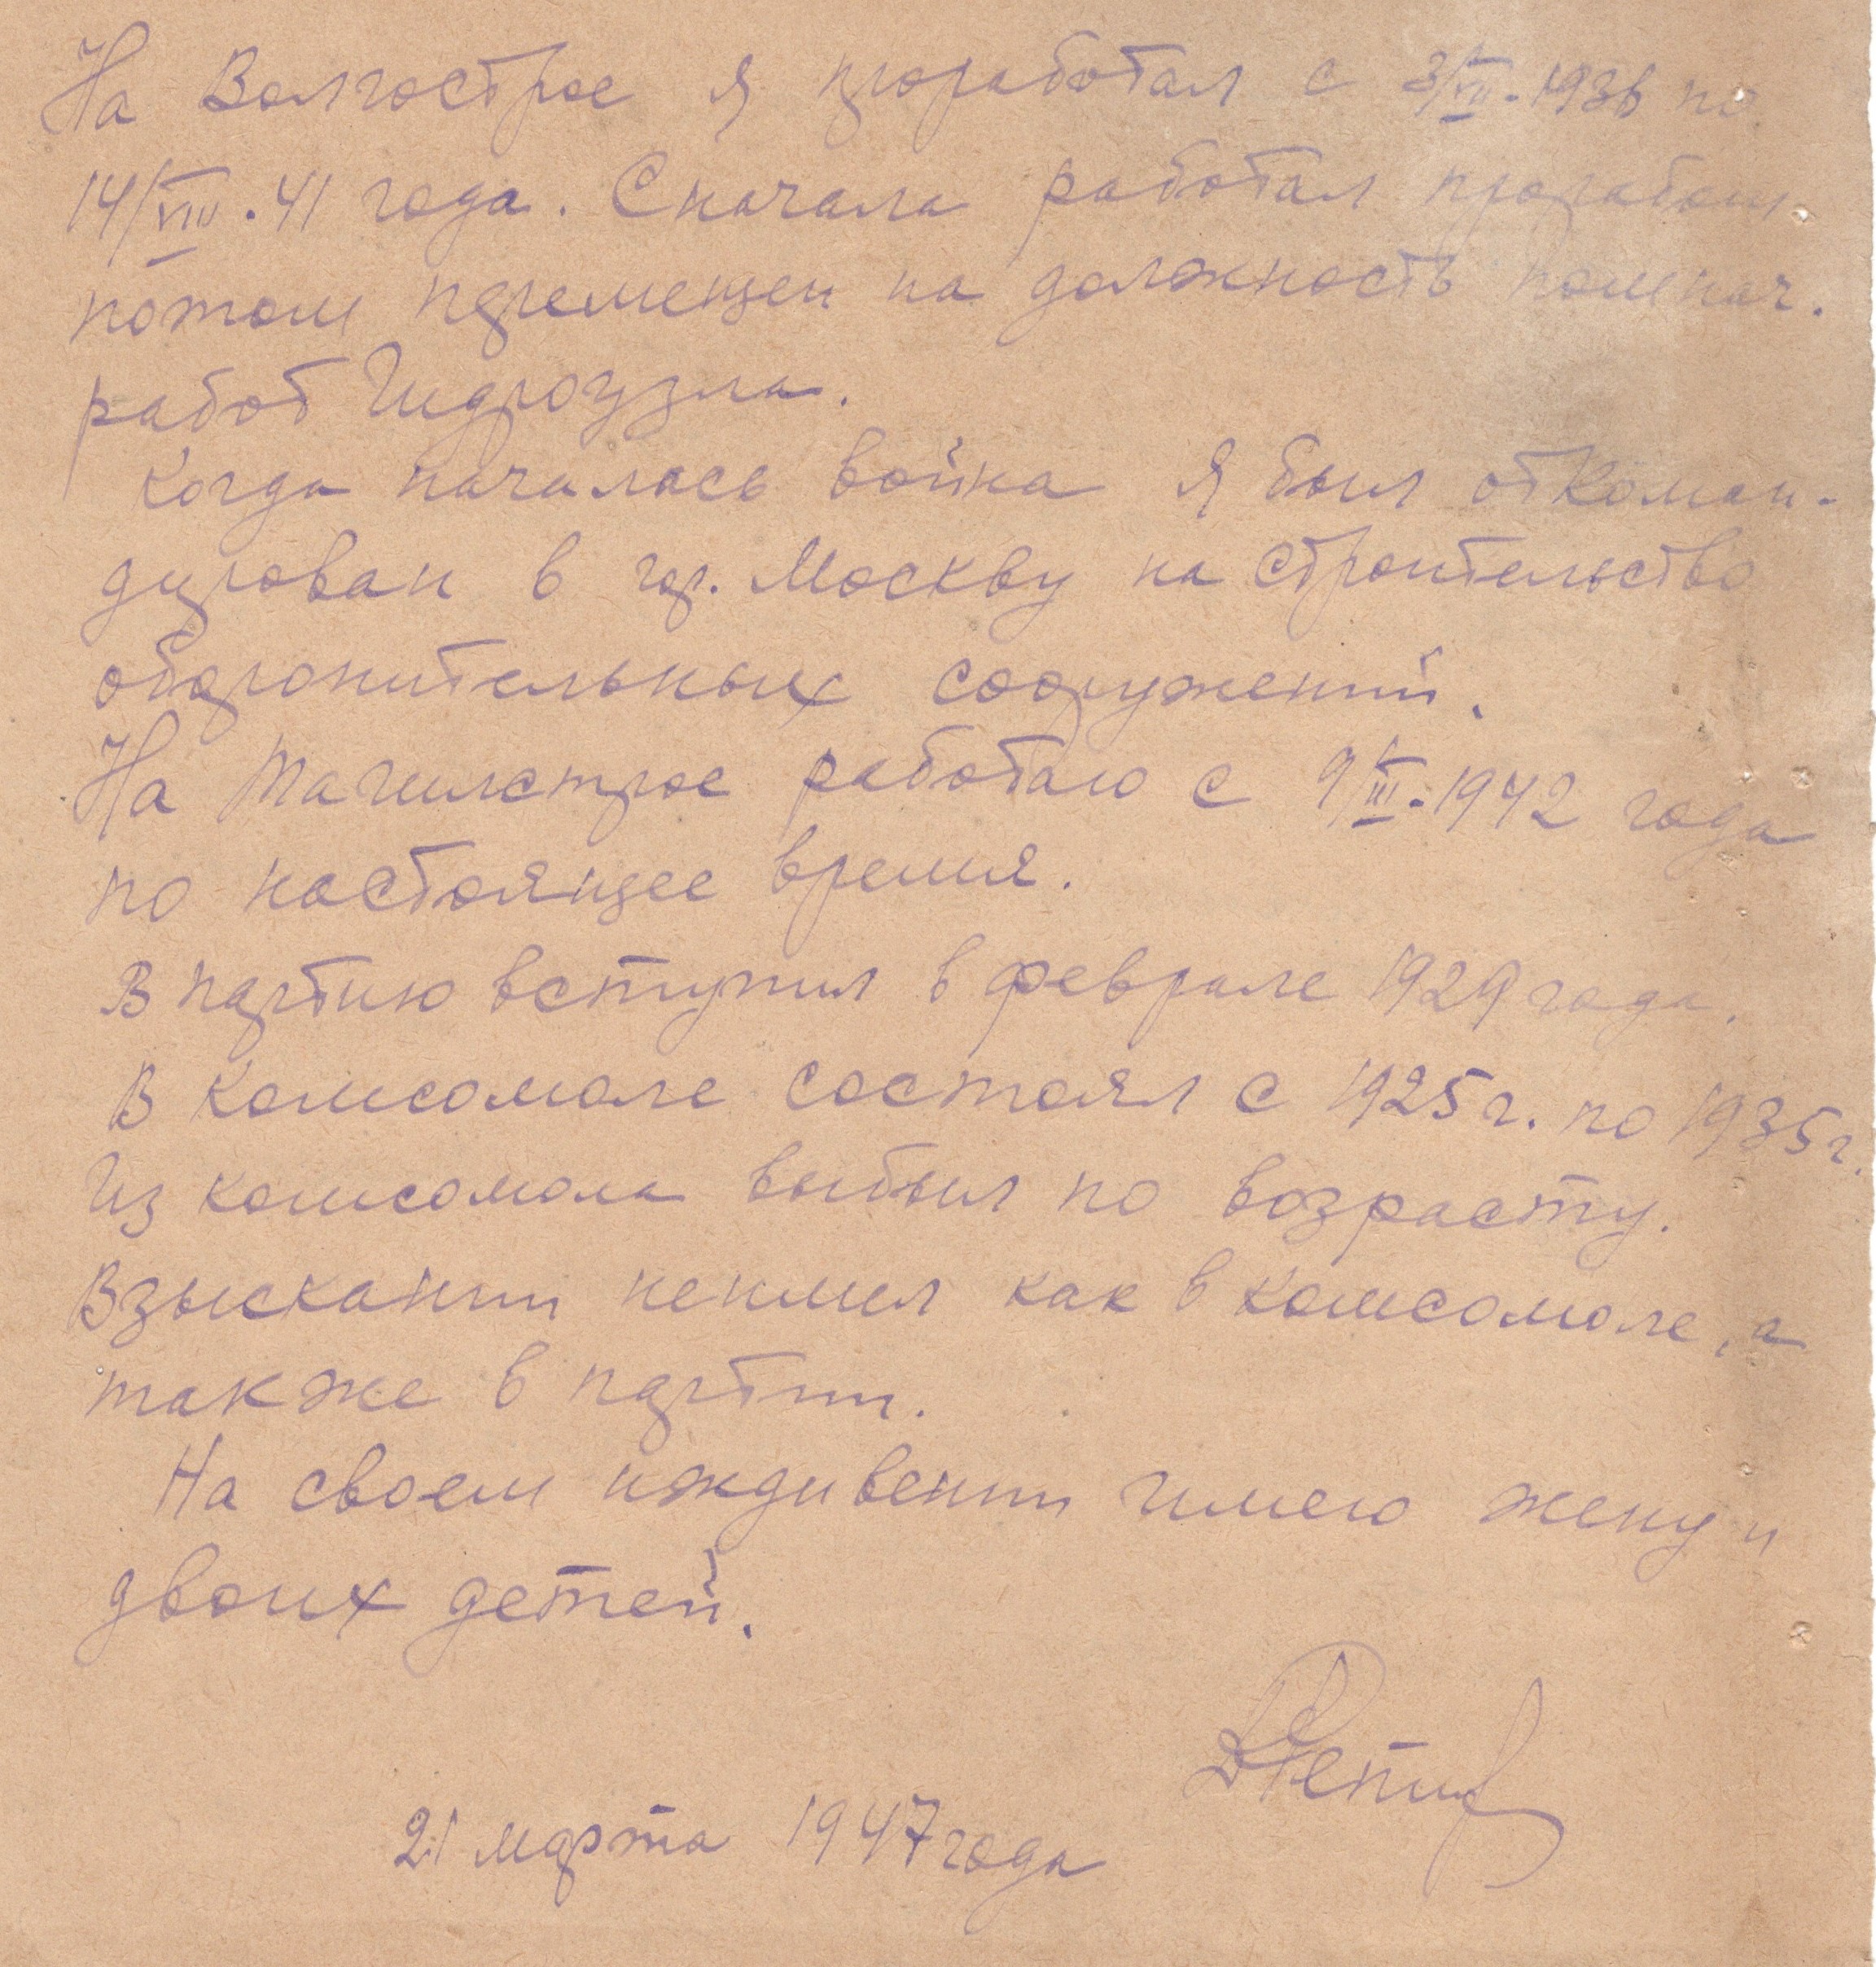 На Волгострое я проработал с 3/VII-1936 по
14/VIII-41 года. Сначала работал прорабом
потом перемещен на должность помнач.
работ Гидроузла.
Когда началась война я был откоман-
дирован в гор. Москву на строительство
оборонительных сооружений.
На Тагилстрое работаю с 9/III-1942 года
по настоящее время.
В партию вступил в феврале 1929 года.
В комсомоле состоял с 1925 г. по 1935 г.
Из комсомола выбыл по возрасту.
Взысканий неимел как в комсомоле, а
также в партии.
На своем иждивении имею жену и
двоих детей.
21 марта 1947 года